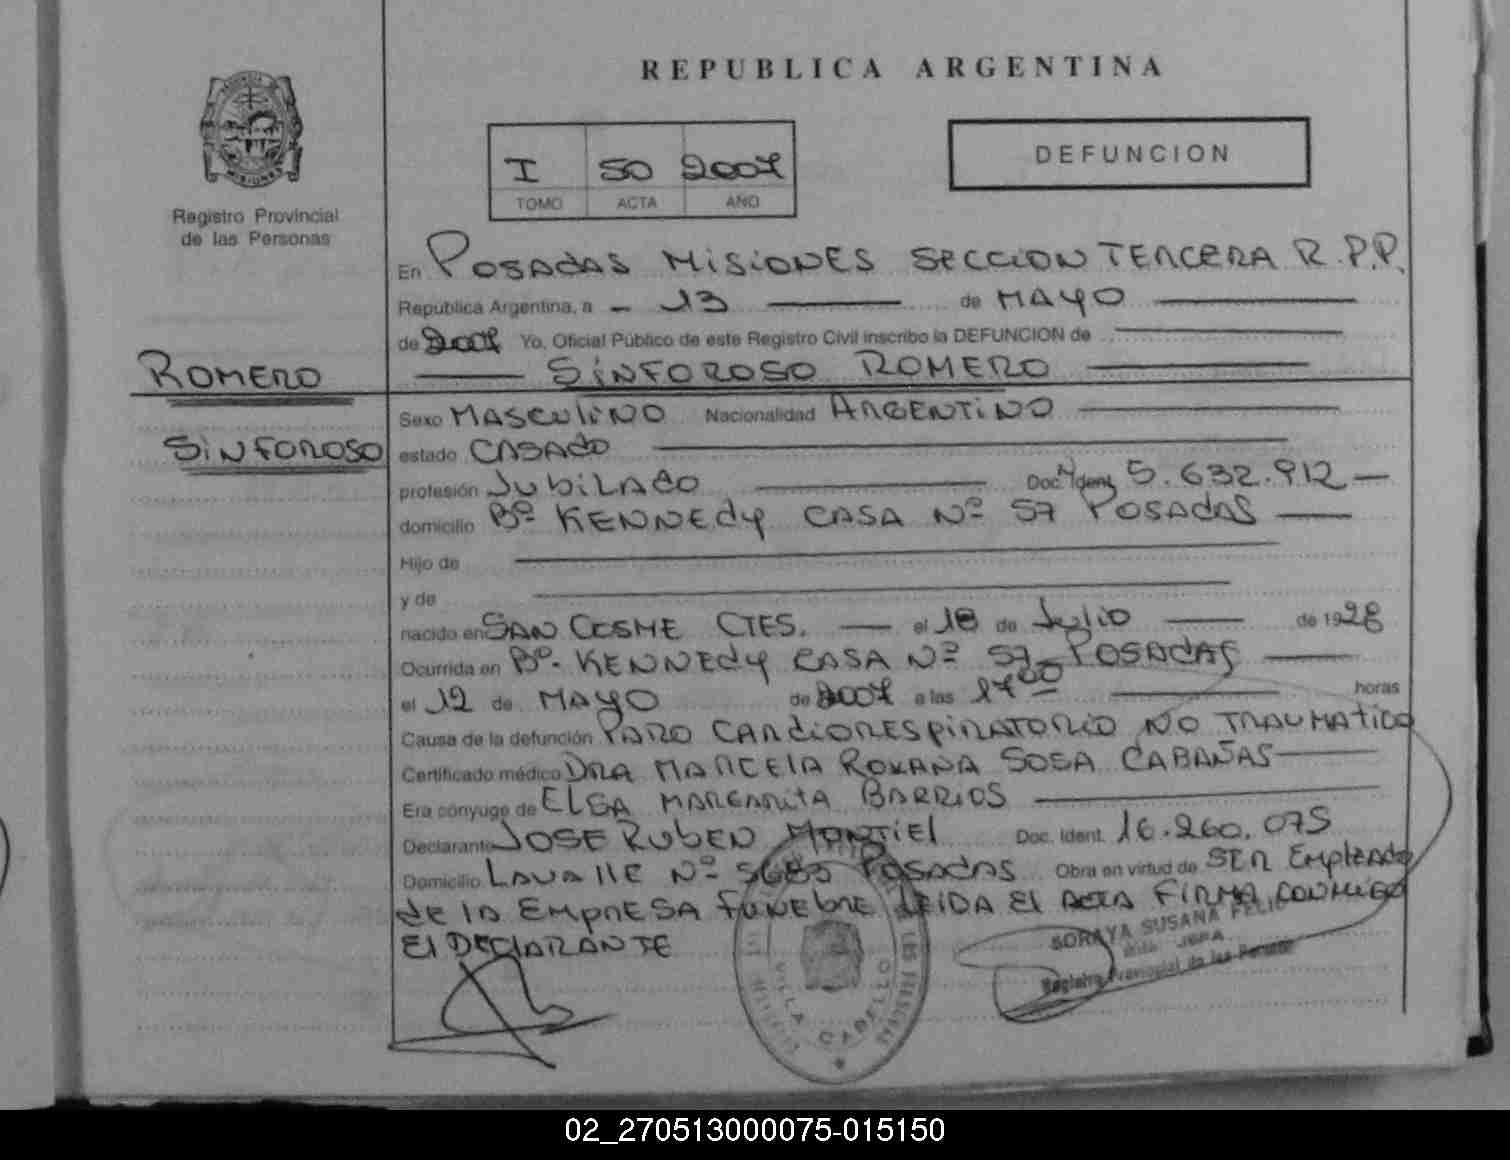 REPUBLICA ARGENTINA
I 50 2007
TOMO ACTA AÑO
DEFUNCION
MISIONES
Registro Provincial
de las Personas
En POSADAS MISIONES SECCION TERCERA R.P.P.
República Argentina, a - 13 de MAYO
de 2007 Yo, Oficial Público de este Registro Civil inscribo la DEFUNCION de
ROMERO
SINFOROSO ROMERO
Sexo MASCULINO Nacionalidad ARGENTINO
SINFOROSO
estado CASADO
profesión JUBILADO Doc. Ident. 5.632.912
domicilio Bº KENNEDY CASA Nº 57 POSADAS
Hijo de
y de
nacido en SAN COSME CTES. el 18 de Julio de 1928
Ocurrida en Bº. KENNEDY CASA Nº 57 POSADAS
el 12 de MAYO de 2007 a las 17 00 horas
Causa de la defunción PARO CARDIORESPIRATORIO NO TRAUMATICO
Certificado médico DRA MARCELA ROXANA SOSA CABAÑAS
Era cónyuge de ELSA MARGARITA BARRIOS
Declarante JOSE RUBEN MONTIEL Doc. Ident. 16.260.075
Domicilio LAVALLE Nº 5683 POSADAS Obra en virtud de SER EMPLEADO
de la EMPRESA FUNEBRE LEIDA EL ACTA FIRMA CONMIGO
EL DECLARANTE
SORAYA SUSANA
JEFA
Registro Provincial de las Personas
VILLA CABELLO
02_270513000075-015150